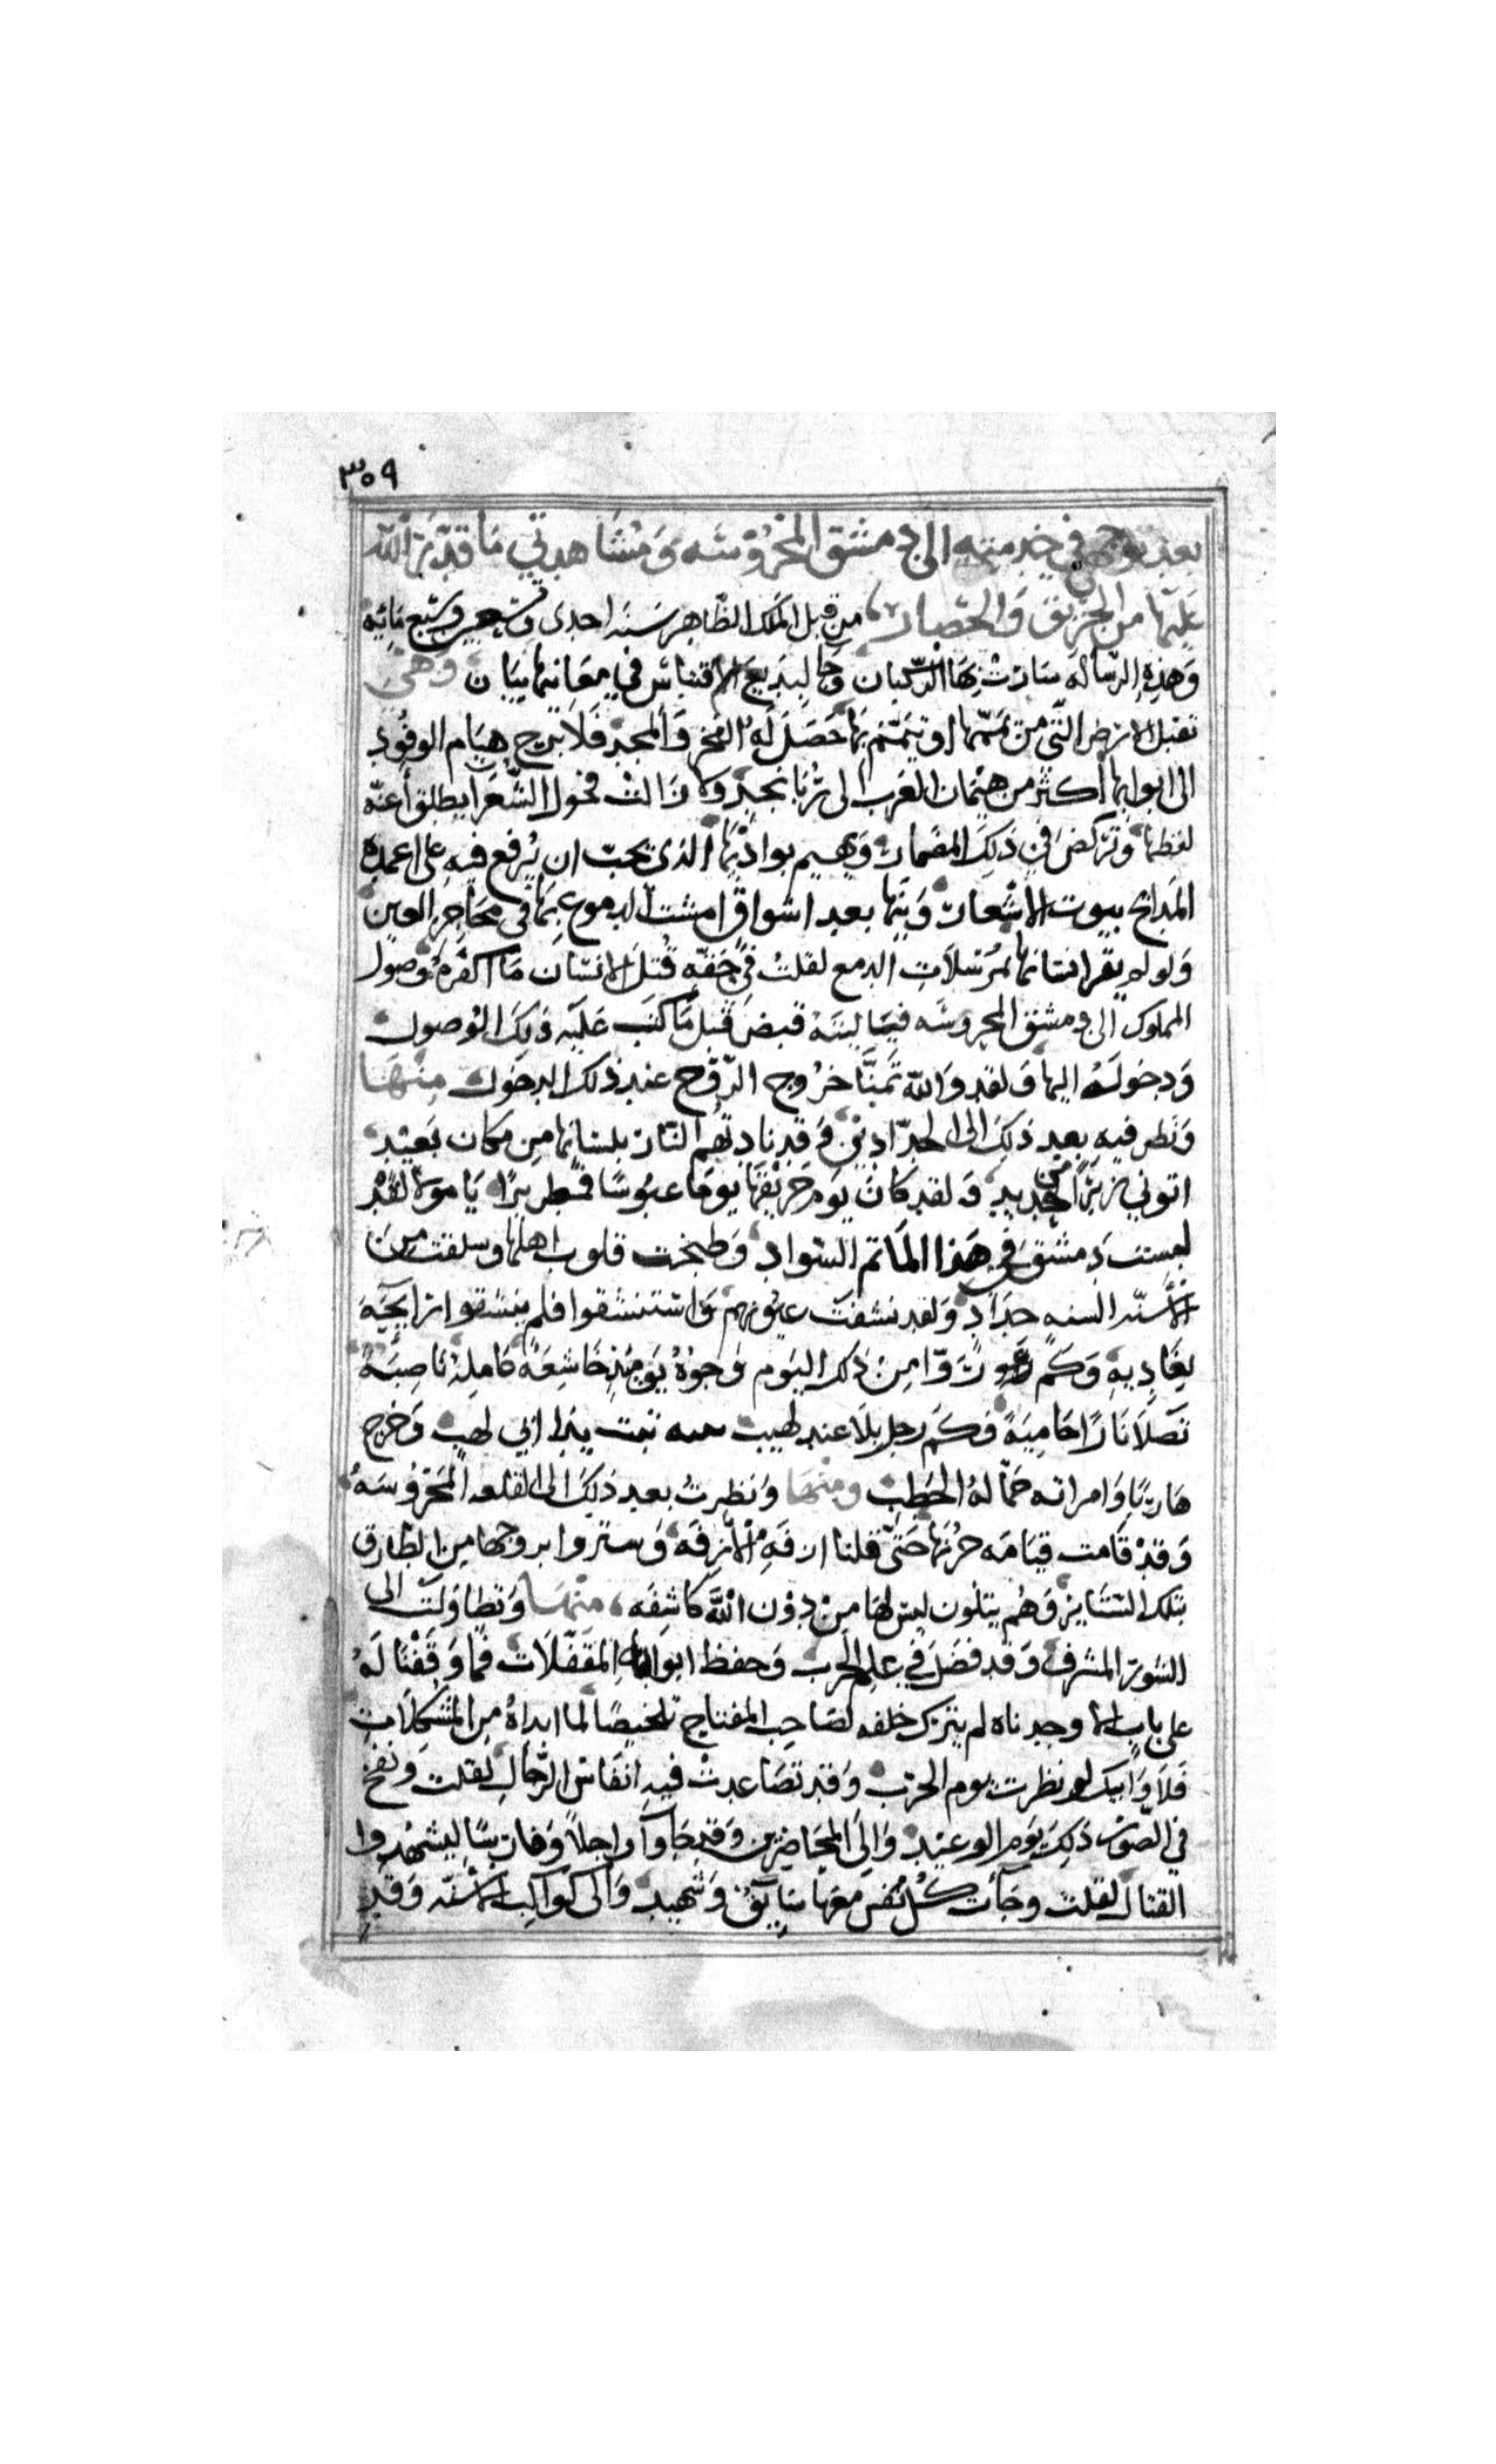 ٣٥٩
بعد توجهي في خدمته الى دمشق المحروسه ومشاهدتي ما قدّر الله
عليها من الحريق والحصار من قبل الملك الظاهر سنه احدى وتسعين وسبع مائيه
وهذه الرساله سارت بها الركبان وجا لبديع الاقتباس في معانيها بيان وهي
تقبل الارض التي من يممها او تيمّم بها حصل له الفخر والمجد فلا برح هيام الوفود
الى ابوابها أكثر من هيمان العرب الى ربا نجد ولا زالت فحول الشعرا يطلق أعنّه
لفظها وتركض في ذلك المضمار ويهيم بواديها الذى يجب ان يُرفع فيه على اعمده
المدايح بيوت الاشعار وينها بعد اشواق امست الدموع بها في محاجر العين
ولو لم يقر انسانها بمرسلات الدمع لقلت في حقّه قتل الانسان ما اكفره وصول
المملوك الى دمشق المحروسه فيا ليته قبض قبل ما كتب عليه ذلك الوصول
ودخوله اليها ولقد والله تمنّا خروج الروح عند ذلك الدخول منها
ونظر فيه بعد ذلك الى الحدّادين وقد نادتهم النار بلسانها من مكان بعيد
اتوني زبرًا من حديد ولقد كان يوم حريقها يومًا عبوسًا قمطريرًا يا مولا لقد
لبست دمشق في هذا المأتم السواد وطبخت قلوب اهلها وسلقت من
الأسنّه السنه حداد ولقد نشفت عيونهم واستنشقوا فلم ينشقوا رايحيه
بغاديه وكم رووا من ذلك اليوم وجوهٌ يومئذٍ خاشعهٌ عاملهٌ ناصبهٌ
تصلا نارًا حاميهً وكم رجل تلا عند لهيب تبت يدا ابي لهب وخرج
هاربًا وامراته حمّاله الحطب ومنها ونظرتُ بعد ذلك الى القلعه المحروسه
وقد قامت قيامه حربها حتى قلنا ازفه الآزفه وستروا بروجها من الطارق
بتلك الستاير وهم يتلون ليس لها من دون الله كاشفه منها وتطاولت الى
السور المشرف وقد فضل في علم الحرب وحفظ ابوابه المقفّلات فما وقفنا له
على باب الا وجدناه لم يترك خلفه لصاحب المفتاح تلخيصًا لما ابداه من المشكلات
فلا وابيك لو نظرت يوم الحرب وقد تصاعدت فيه انفاس الرجال لقلت ونفخ
في الصور ذلك يوم الوعيد والى المحاضرين وقد جاوا راجلاً وفارسًا ليشهدوا
القتال لقلت وجأت كل نفس معها سايق وشهيد والى كواكب الأسنّه وقد